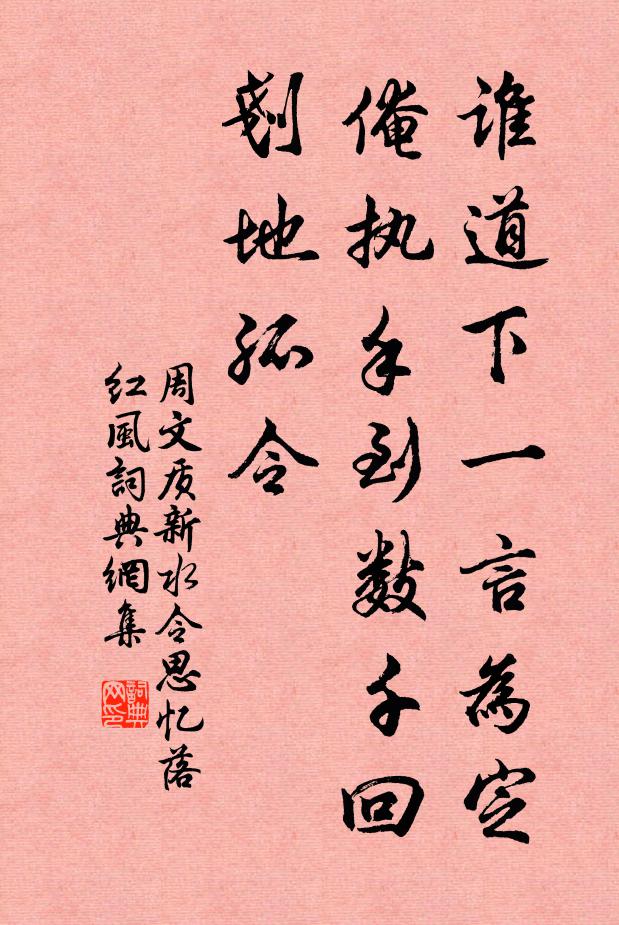 谁道下一言為定
俺执手到数千回
刬地孤令
周文质新水令思忆落
红風詞典網集
詞典
网印